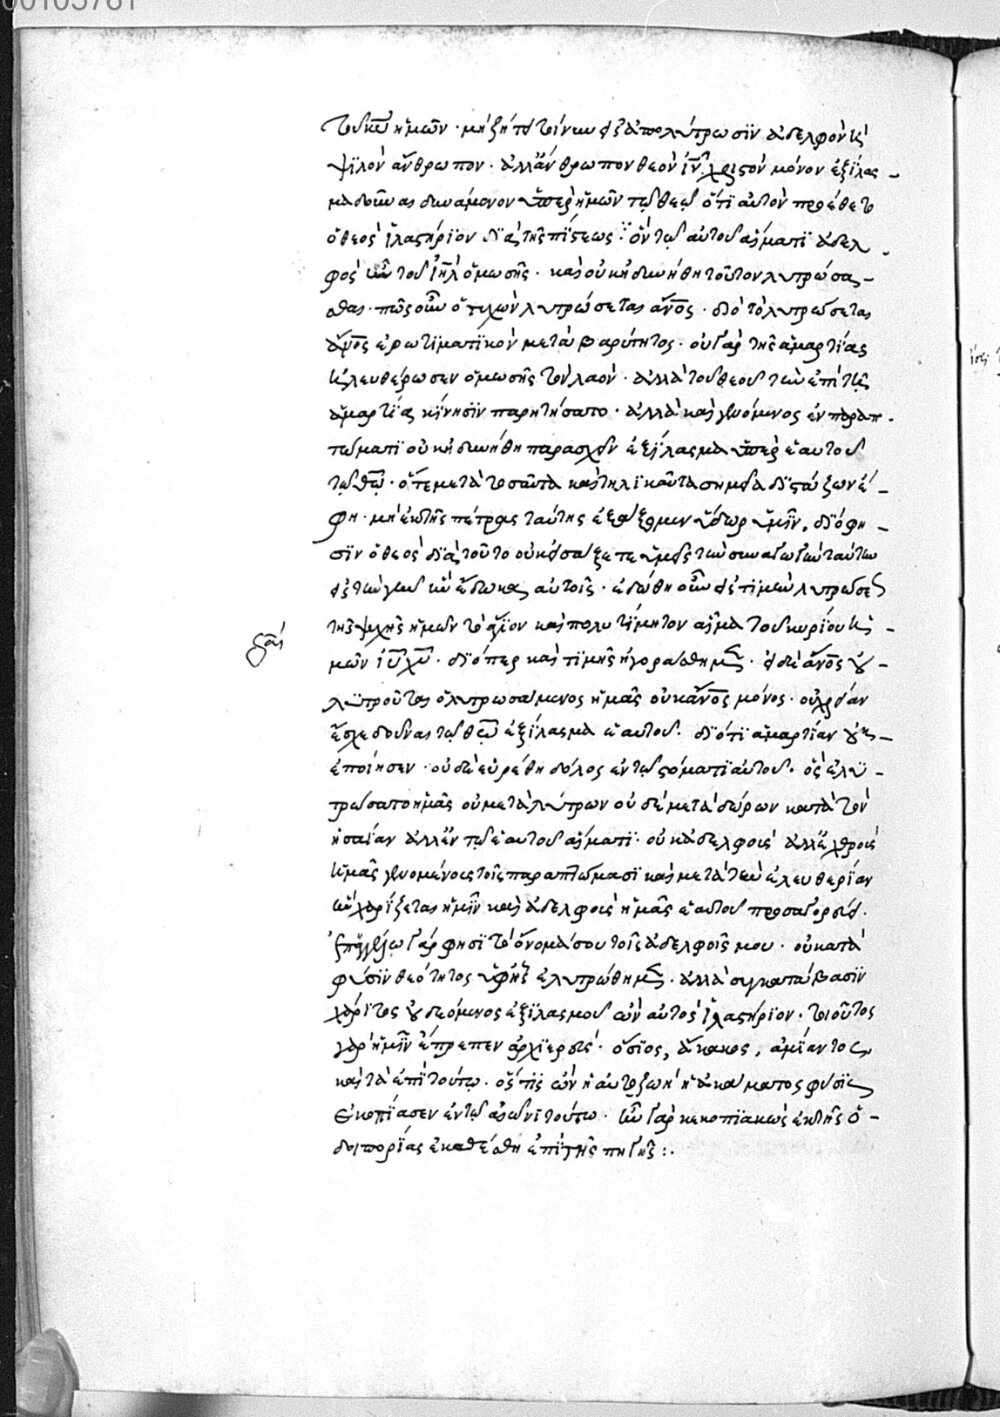 00105761
τοῦ κυ ἡμῶν · μὴ ζήτει τοίνυν εἰς ἀπολύτρωσϊν ἀδελφὸν ἢ
ψϊλὸν ἄνθρωπον · ἀλλ' ἄνθρωπον θεὸν ιν χριστὸν μόνον ἐξϊλασ-
μα δοῦναι δυνάμενον ὑπὲρ ἡμῶν τῷ θεῷ ὅτϊ αὐτὸν προέθετο
ὁ θεὸς ἱλαστήριον διὰ τῆς πίστεως · ἐν τῷ αὐτοῦ αἵματϊ ἀδελ-
φὸς ἦν τοῦ ιηλ ὁ μωσῆς · καὶ οὐκ ἠδυνήθη τοῦτον λυτρώσα-
σθαι · πῶς οὖν ὁ τυχὼν λυτρώσεται ανος · διὸ τὸ λυτρώσεται
ανος ἐρωτιματϊκὸν μετὰ βαρύτητος · οὐ γὰρ τῆς ἁμαρτίας
ἠλευθέρωσεν ὁ μωσῆς τὸν λαὸν · ἀλλὰ τοῦ θεοῦ τὴν ἐπὶ τῇ
ἁμαρτίᾳ κίνησϊν παρητήσατο · ἀλλὰ καὶ γενόμενος ἐν παραπ-
τώματϊ οὐκ ἠδυνήθη παρασχεῖν ἐξίλασμα ὑπὲρ ἑαυτοῦ
τῷ θω · ὅτε μετὰ τοσαῦτα καὶ τηλικαῦτα σημεῖα διστάζων ἔ-
φη · μὴ ἐκ τῆς πέτρας ταύτης ἐξάξωμεν ὕδωρ ὑμῖν, διό φη-
σϊν ὁ θεὸς διὰ τοῦτο οὐκ εἰσάξετε ὑμεῖς τὴν συναγωγὴν ταύτην
εἰς τὴν γῆν ἣν ἔδωκα αὐτοῖς · ἐδόθη οὖν εἰς τϊμὴν λυτρώσεως
τῆς ψυχῆς ἡμῶν τὸ ἅγϊον καὶ πολυτίμητον αἷμα τοῦ κυρίου ἡ-
μῶν ιυ χυ · διόπερ καὶ τϊμῆς ἠγοράσθημεν · εἰ δὲ ανος οὐ
λυτροῦται ὁ λυτρωσάμενος ἡμᾶς οὐκ ανος μόνος · οὐ χρείαν
ἔσχε δοῦναι τῷ θω ἐξίλασμα ἑαυτοῦ · διότϊ ἁμαρτίαν οὐκ
ἐποίησεν · οὐδὲ εὑρέθη δόλος ἐν τῷ στόματϊ αὐτοῦ · ὃς ἐλυ-
τρώσατο ἡμᾶς οὐ μετὰ λύτρων οὐδὲ μετὰ δώρων κατὰ τὸν
ἡσαΐαν ἀλλ' ἐν τῷ ἑαυτοῦ αἵματϊ · οὐκ ἀδελφοὺς ἀλλ' ἐχθροὺς
ἡμᾶς γενομένους τοῖς παραπτώμασϊ καὶ μετὰ τὴν ἐλευθερίαν
ἣν χαρίζεται ἡμῖν καὶ ἀδελφοὺς ἡμᾶς ἑαυτοῦ προσαγορεύει ·
ἀπαγγελῶ γάρ φησϊ τὸ ὄνομά σου τοῖς ἀδελφοῖς μου · οὐ κατὰ
φύσϊν θεότητος ὑφ' ἧς ἐλυτρώθημεν · ἀλλὰ συγκατάβασϊν
χάρϊτος οὐ δεόμενος ἐξϊλασμοῦ ὢν αὐτὸς ἱλαστήρϊον · τοιοῦτος
γὰρ ἡμῖν ἔπρεπεν ἀρχϊερεὺς · ὅσϊος, ἄκακος, ἀμίαντος
καὶ τὰ ἐπὶ τούτῳ · ὅστϊς ὢν ἡ αὐτοζωὴ ἡ ἀκάματος φύσϊς
ἐκοπίασεν ἐν τῷ αἰῶνϊ τούτῳ · ἦν γὰρ κεκοπϊακὼς ἐκ τῆς ὁ-
δοιπορίας ἐκαθέσθη ἐπὶ τῆς πηγῆς :·